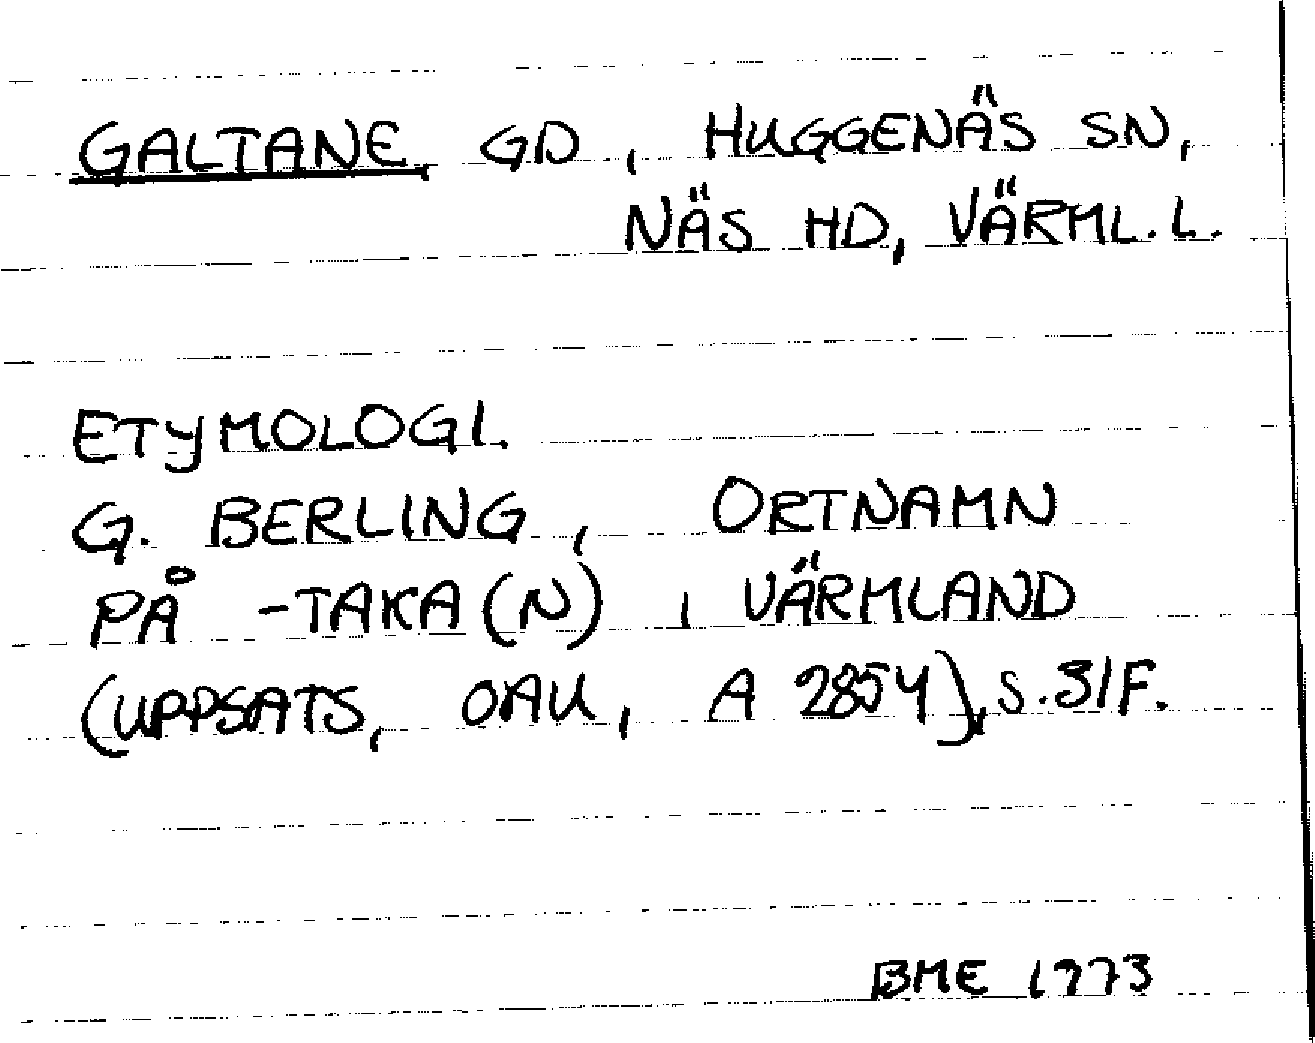 GALTANE, GD, HUGGENÄS SN,
NÄS HD, VÄRML. L.
ETYMOLOGI.
G. BERLING, ORTNAMN
PÅ -TAKA(N) I VÄRMLAND
(UPPSATS, OAU, A 2854), S. 31F.
BME 1973